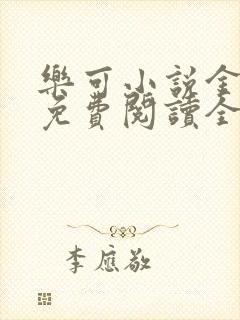 樂可小說全
免費閱讀全
李應敬